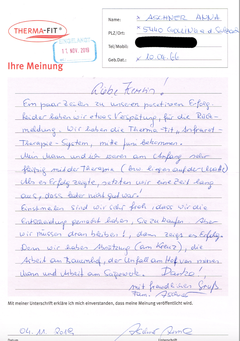 THERMA-FIT®
Name: ASCHNER ANNA
PLZ/Ort: 5440 GOLLING a.d. Salzach
Tel/Mobil:
11. NOV. 2019
Geb.Dat.: 10.09.66
Ihre Meinung
Liebe Kerstin!
Ein paar Zeilen zu unseren positiven Erfolg.
leider haben wir etwas Verspätung, für die Rück-
meldung. Wir haben die Therma-Fit, Infrarot-
Therapie-System, mit für bekommen.
Mein Mann und ich waren am Anfang sehr
fleißig mit der Therapie
Als es Erfolg zeigte, setzten wir eine Zeit lang
aus, dass leider nicht gut war!
Einstweilen sind wir sehr froh, dass wir die
Entscheidung gemacht haben, Sie zu kaufen. Aber
wir müssen dran bleiben!, dann zeigt es Erfolg.
Denn wir haben Belastung (am Kreuz), die
Arbeit am Bauernhof, der Unfall am Hof von meinen
Mann und Arbeit am Danke!
mit freundlichen Gruß
Fam.
Mit meiner Unterschrift erkläre ich mich einverstanden, dass meine Meinung veröffentlicht wird.
04.11.2019
Datum Unterschrift